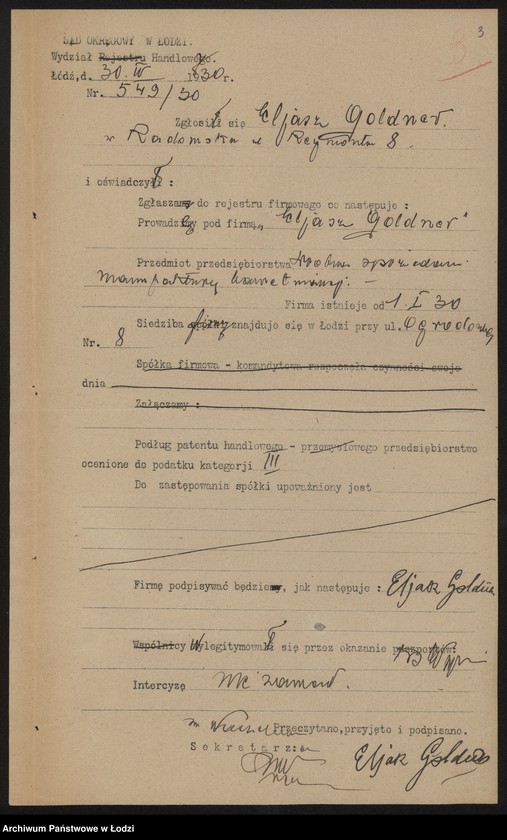 3
SĄD OKRĘGOWY W ŁODZI.
Wydział Rejestru Handlowego.
Łódź,d. 30. IV 1930r.
Nr. 549/30
Zgłosił się Eljasz Goldner.
w Radomsku Reymonta 8.
i oświadczył :
Zgłaszam do rejestru firmowego co następuje :
Prowadzę pod firmą „Eljasz Goldner"
Przedmiot przedsiębiorstwa drobna sprzedaż
manufaktury bawełnianej. —
Firma istnieje od 1. I 30
Siedziba firmy znajduje się w Łodzi przy ul. Ogrodowej
Nr. 8
Spółka firmowa - komandytowa rozpoczęła czynności swoje
dnia
Załączamy :
Podług patentu handlowego - przemysłowego przedsiębiorstwo
ocenione do podatku kategorji III
Do zastępowania spółki upoważniony jest
Firmę podpisywać będzie, jak następuje : Eljasz Goldner
Wspólnicy Wylegitymował się przez okazanie paszportów:
Intercyzę nie zawarł.
Przeczytano,przyjęto i podpisano.
Sekretarz:
Eljasz Goldner
Archiwum Państwowe w Łodzi